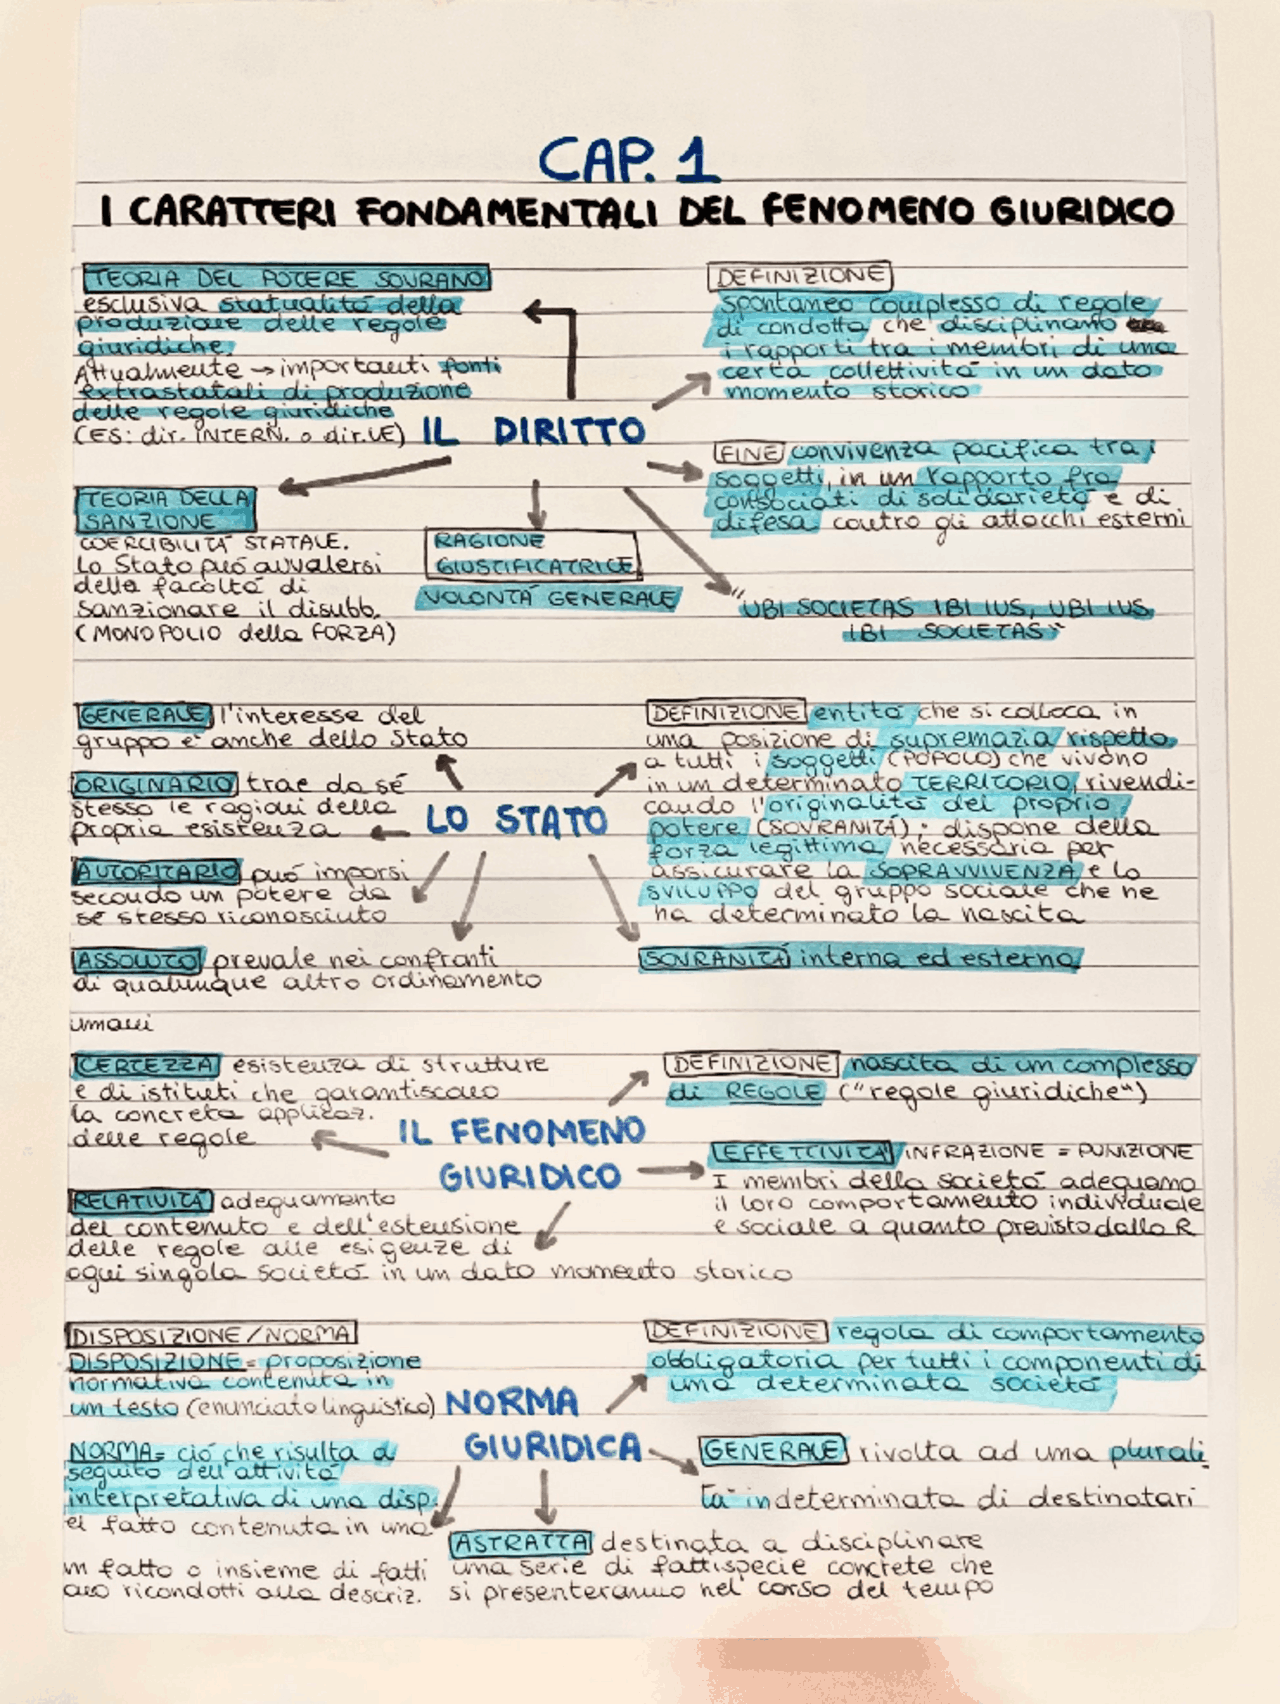 CAP. 1
I CARATTERI FONDAMENTALI DEL FENOMENO GIURIDICO
TEORIA DEL POTERE SOVRANO
esclusiva statualità della
produzione delle regole
giuridiche.
Attualmente → importanti fonti
extrastatali di produzione
delle regole giuridiche
(ES: dir. INTERN. o dir. UE)
DEFINIZIONE
spontaneo complesso di regole
di condotta che disciplinano
i rapporti tra i membri di una
certa collettività in un dato
momento storico
IL DIRITTO
FINE convivenza pacifica tra i
soggetti, in un rapporto fra
consociati di solidarietà e di
difesa contro gli attacchi esterni
TEORIA DELLA
SANZIONE
COERCIBILITÀ STATALE.
Lo Stato può avvalersi
della facoltà di
sanzionare il disubb.
(MONOPOLIO della FORZA)
RAGIONE
GIUSTIFICATRICE
VOLONTÀ GENERALE
"UBI SOCIETAS IBI IUS, UBI IUS
IBI SOCIETAS"
GENERALE l'interesse del
gruppo è anche dello Stato
ORIGINARIO trae da sé
stesso le ragioni della
propria esistenza
AUTORITARIO può imporsi
secondo un potere da
sé stesso riconosciuto
ASSOLUTO prevale nei confronti
di qualunque altro ordinamento
LO STATO
DEFINIZIONE entità che si colloca in
una posizione di supremazia rispetto
a tutti i soggetti (POPOLO) che vivono
in un determinato TERRITORIO, rivendi-
cando l'originalità del proprio
potere (SOVRANITÀ); dispone della
forza legittima necessaria per
assicurare la SOPRAVVIVENZA e lo
SVILUPPO del gruppo sociale che ne
ha determinato la nascita
SOVRANITÀ interna ed esterna
umani
CERTEZZA esistenza di strutture
e di istituti che garantiscano
la concreta applicaz.
delle regole
DEFINIZIONE nascita di un complesso
di REGOLE ("regole giuridiche")
IL FENOMENO
GIURIDICO
EFFETTIVITÀ INFRAZIONE = PUNIZIONE
I membri della società adeguano
il loro comportamento individuale
e sociale a quanto previsto dalla R
RELATIVITÀ adeguamento
del contenuto e dell'estensione
delle regole alle esigenze di
ogni singola società in un dato momento storico
DISPOSIZIONE/NORMA
DISPOSIZIONE = proposizione
normativa contenuta in
un testo (enunciato linguistico)
NORMA = ciò che risulta a
seguito dell'attività
interpretativa di una disp.
el fatto contenuta in una
un fatto o insieme di fatti
ano ricondotti alla descriz.
NORMA
GIURIDICA
DEFINIZIONE regola di comportamento
obbligatoria per tutti i componenti di
una determinata società
GENERALE rivolta ad una plurali
tà indeterminata di destinatari
ASTRATTA destinata a disciplinare
una serie di fattispecie concrete che
si presenteranno nel corso del tempo